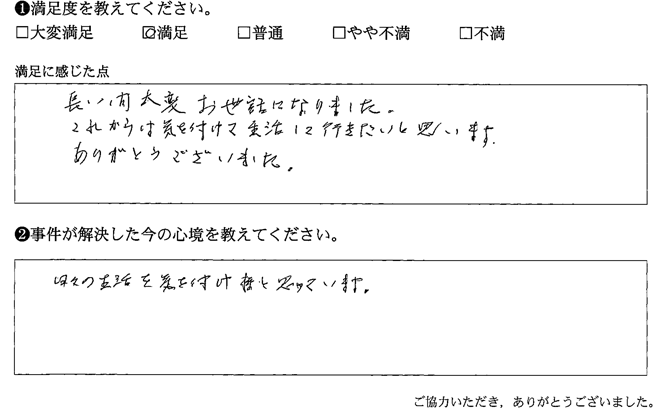 ❶満足度を教えてください。
□大変満足 ☑満足 □普通 □やや不満 □不満
満足に感じた点
長い間大変お世話になりました。
これからは気を付けて生活して行きたいと思います。
ありがとうございました。
❷事件が解決した今の心境を教えてください。
日々の生活を気を付け様と思っています。
ご協力いただき，ありがとうございました。